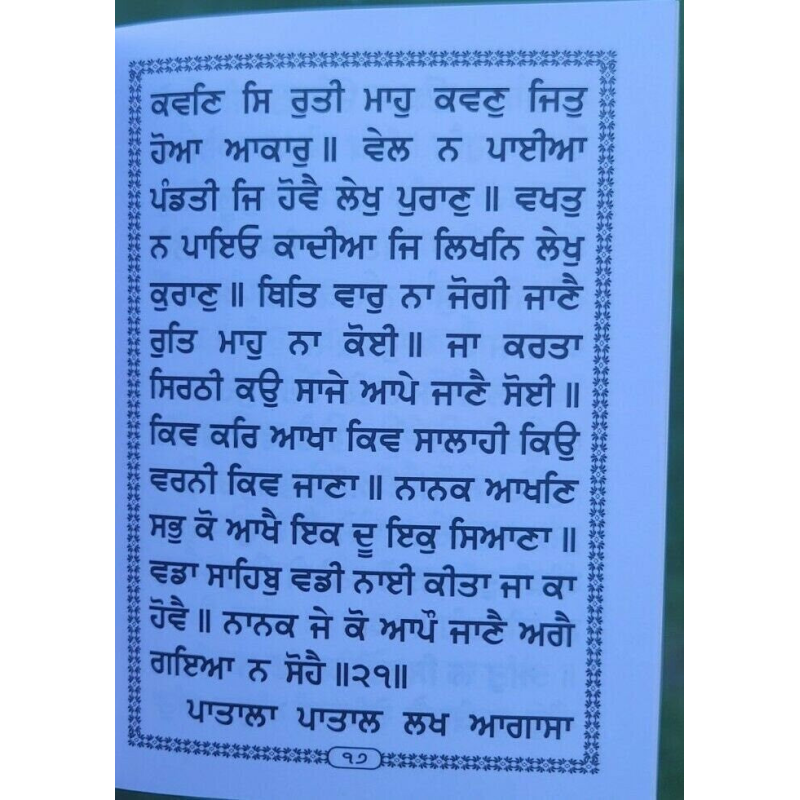 ਕਵਣਿ ਸਿ ਰੁਤੀ ਮਾਹੁ ਕਵਣੁ ਜਿਤੁ
ਹੋਆ ਆਕਾਰੁ ॥ ਵੇਲ ਨ ਪਾਈਆ
ਪੰਡਤੀ ਜਿ ਹੋਵੈ ਲੇਖੁ ਪੁਰਾਣੁ ॥ ਵਖਤੁ
ਨ ਪਾਇਓ ਕਾਦੀਆ ਜਿ ਲਿਖਨਿ ਲੇਖੁ
ਕੁਰਾਣੁ ॥ ਥਿਤਿ ਵਾਰੁ ਨਾ ਜੋਗੀ ਜਾਣੈ
ਰੁਤਿ ਮਾਹੁ ਨਾ ਕੋਈ ॥ ਜਾ ਕਰਤਾ
ਸਿਰਠੀ ਕਉ ਸਾਜੇ ਆਪੇ ਜਾਣੈ ਸੋਈ ॥
ਕਿਵ ਕਰਿ ਆਖਾ ਕਿਵ ਸਾਲਾਹੀ ਕਿਉ
ਵਰਨੀ ਕਿਵ ਜਾਣਾ ॥ ਨਾਨਕ ਆਖਣਿ
ਸਭੁ ਕੋ ਆਖੈ ਇਕ ਦੂ ਇਕੁ ਸਿਆਣਾ ॥
ਵਡਾ ਸਾਹਿਬੁ ਵਡੀ ਨਾਈ ਕੀਤਾ ਜਾ ਕਾ
ਹੋਵੈ ॥ ਨਾਨਕ ਜੇ ਕੋ ਆਪੌ ਜਾਣੈ ਅਗੈ
ਗਇਆ ਨ ਸੋਹੈ ॥੨੧॥
ਪਾਤਾਲਾ ਪਾਤਾਲ ਲਖ ਆਗਾਸਾ
੧੭